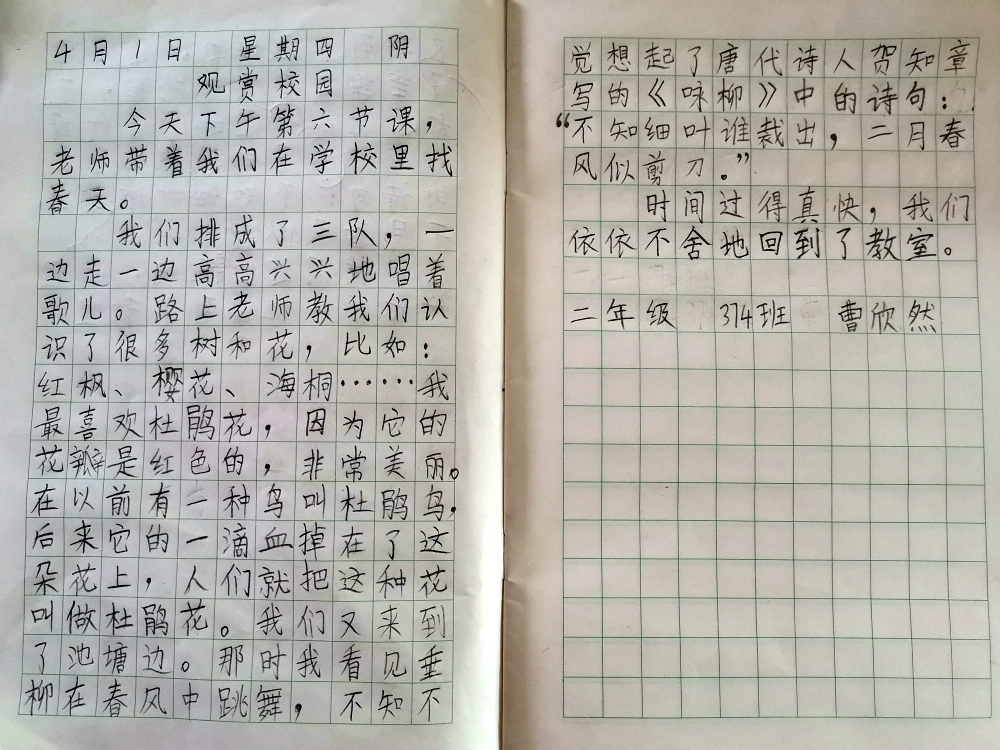 4月1日 星期四 阴
观赏校园
今天下午第六节课，
老师带着我们在学校里找
春天。
我们排成了三队，一
边走一边高高兴兴地唱着
歌儿。路上老师教我们认
识了很多树和花，比如：
红枫、樱花、海桐……我
最喜欢杜鹃花，因为它的
花瓣是红色的，非常美丽。
在以前有一种鸟叫杜鹃鸟，
后来它的一滴血掉在了这
朵花上，人们就把这种花
叫做杜鹃花。我们又来到
了池塘边。那时我看见垂
柳在春风中跳舞，不知不
觉想起了唐代诗人贺知章
写的《咏柳》中的诗句：
“不知细叶谁裁出，二月春
风似剪刀。”
时间过得真快，我们
依依不舍地回到了教室。
二年级 374班 曹欣然